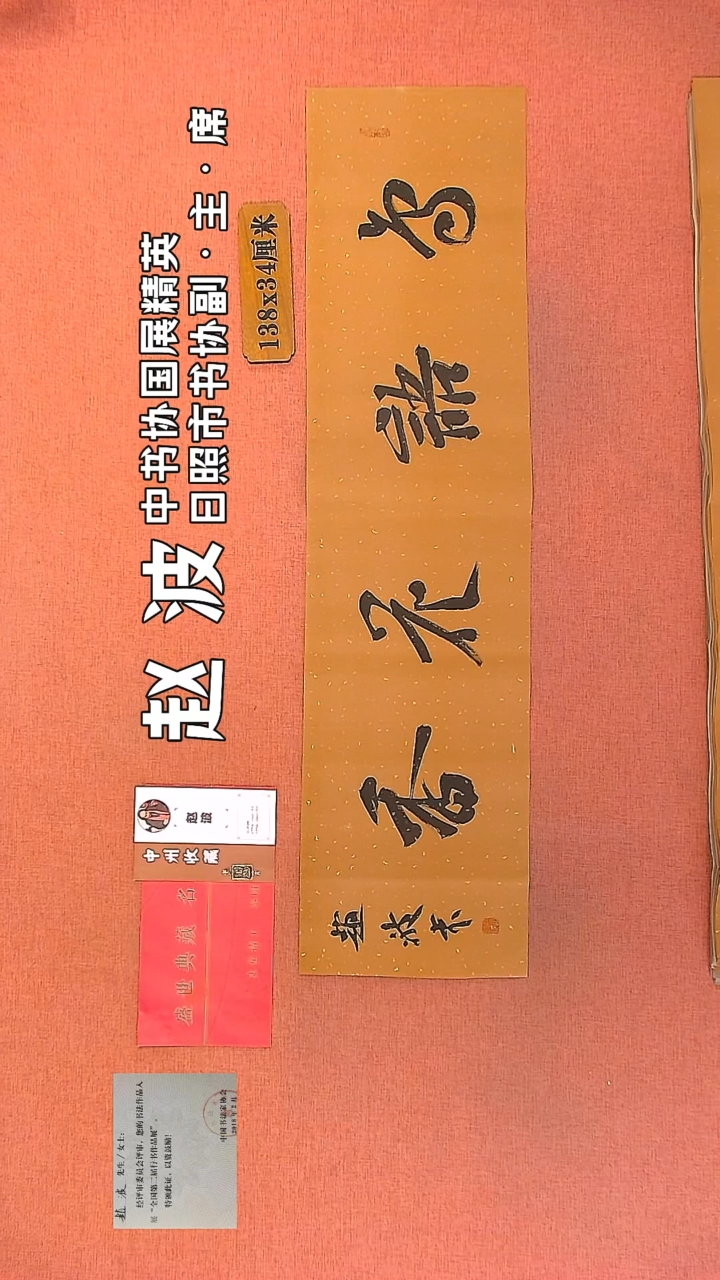 赵波
中书协国展精英
日照市书协副·主·席
138x34厘米
鸟語花香
趙波书
赵波
中州收藏
盛世典藏
名
赵波 先生/女士:
经评审委员会评审,您的书法作品入
展“全国第二届行书作品展”。
特颁此证,以资鼓励!
中国书法家协会
2018年2月